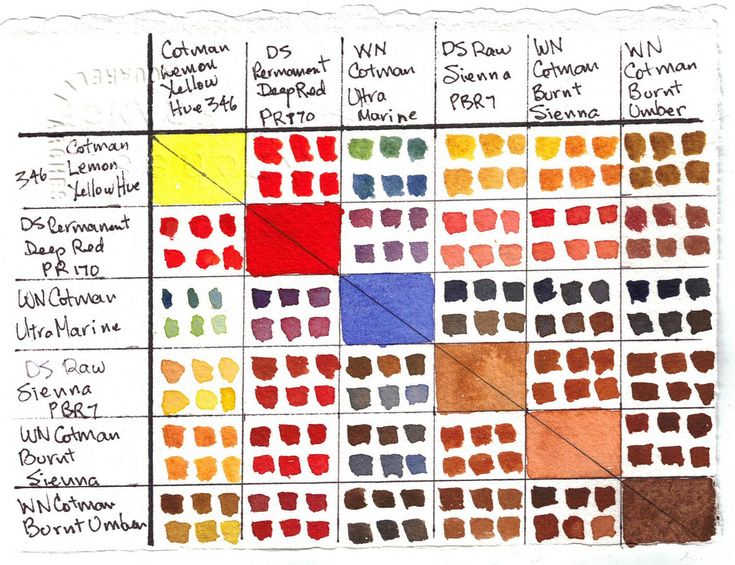 Cotman
Lemon
Yellow
Hue 346
DS
Permament
Deep Red
PR170
WN
Cotman
Ultra
Marine
DS Raw
Sienna
PBR7
WN
Cotman
Burnt
Sienna
WN
Cotman
Burnt
Umber
Cotman
346 Lemon
Yellow Hue
DS Permanent
Deep Red
PR 170
WN Cotman
Ultra Marine
DS Raw
Sienna
PBR7
WN Cotman
Burnt
Sienna
WN Cotman
Burnt Umber